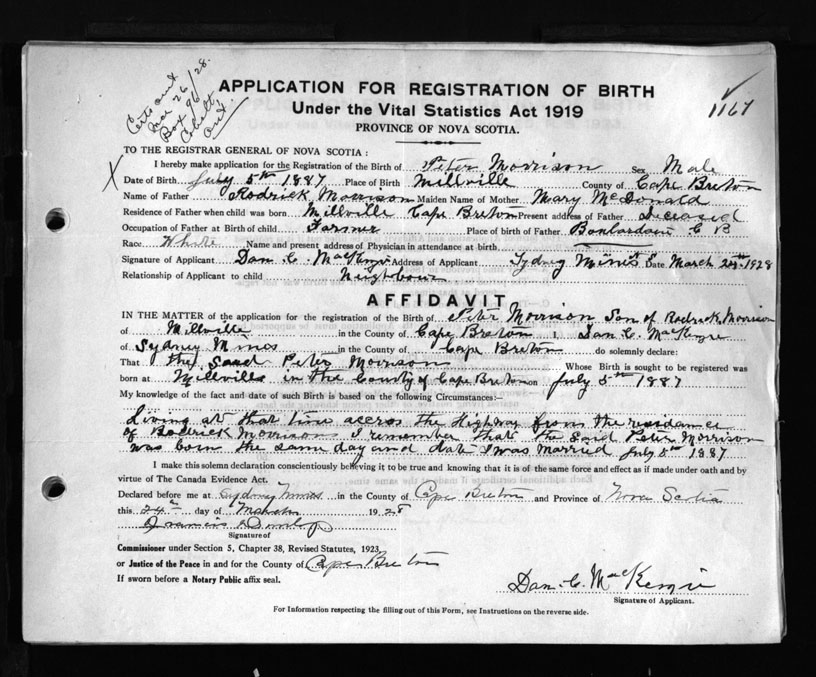 Certs and
Mar 26/28.
Box 96
Cobalt,
Ont.
1167
APPLICATION FOR REGISTRATION OF BIRTH
Under the Vital Statistics Act 1919
PROVINCE OF NOVA SCOTIA.
TO THE REGISTRAR GENERAL OF NOVA SCOTIA :
I hereby make application for the Registration of the Birth of Peter Morrison Sex Male
X Date of Birth July 5th 1887 Place of Birth Millville County of Cape Breton
Name of Father Rodrick Morrison Maiden Name of Mother Mary McDonald
Residence of Father when child was born Millville Cape Breton Present address of Father Deceased
Occupation of Father at Birth of child Farmer Place of birth of Father Boulardarie C B
Race White Name and present address of Physician in attendance at birth
Signature of Applicant Dan. C. MacKenzie Address of Applicant Sydney Mines Date March 24th 1928
Relationship of Applicant to child Neighbour
AFFIDAVIT
IN THE MATTER of the application for the registration of the Birth of Peter Morrison Son of Rodrick Morrison
of Millville in the County of Cape Breton I, Dan C. MacKenzie
of Sydney Mines in the County of Cape Breton do solemnly declare:
That the Said Peter Morrison Whose Birth is sought to be registered was
born at Millville in the County of Cape Breton on July 5th 1887
My knowledge of the fact and date of such Birth is based on the following Circumstances:—
Living at that time accros the Highway from the residance
of Rodrick Morrison I remember that the Said Peter Morrison
was born the same day and date I was Married July 5th 1887
I make this solemn declaration conscientiously believing it to be true and knowing that it is of the same force and effect as if made under oath and by
virtue of The Canada Evidence Act.
Declared before me at Sydney Mines in the County of Cape Breton and Province of Nova Scotia
this 24th day of March 1928
Dunlop
Signature of
Commissioner under Section 5, Chapter 38, Revised Statutes, 1923
or Justice of the Peace in and for the County of Cape Breton
If sworn before a Notary Public affix seal.
Dan. C. MacKenzie
Signature of Applicant.
For Information respecting the filling out of this Form, see Instructions on the reverse side.